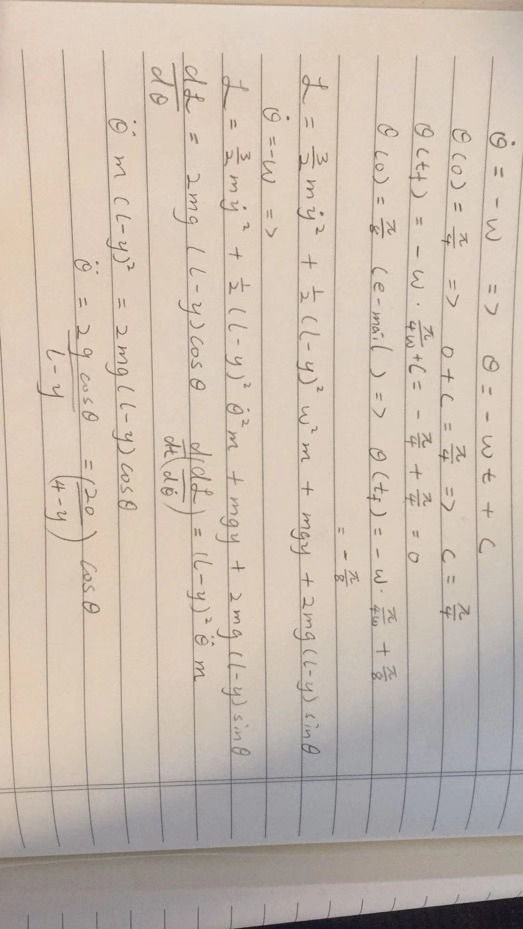 θ̇ = -w => θ = -wt + C
θ(0) = π/4 => 0 + C = π/4 => C = π/4
θ(t₁) = -w · π/4w + C = -π/4 + π/4 = 0
θ(0) = π/8 (e-mail) => θ(t₁) = -w · π/4w + π/8
= -π/8
L = 3/2 mẏ² + 1/2 (l-y)² w² m + mgy + 2mg(l-y) sinθ
θ̇ = -w =>
L = 3/2 mẏ² + 1/2 (l-y)² θ̇² m + mgy + 2mg(l-y) sinθ
dL/dθ = 2mg (l-y) cosθ d/dt(dL/dθ̇) = (l-y)² θ̈ m
θ̈ m (l-y)² = 2mg(l-y) cosθ
θ̈ = 2g cosθ/(l-y) = (20/(4-y)) cosθ